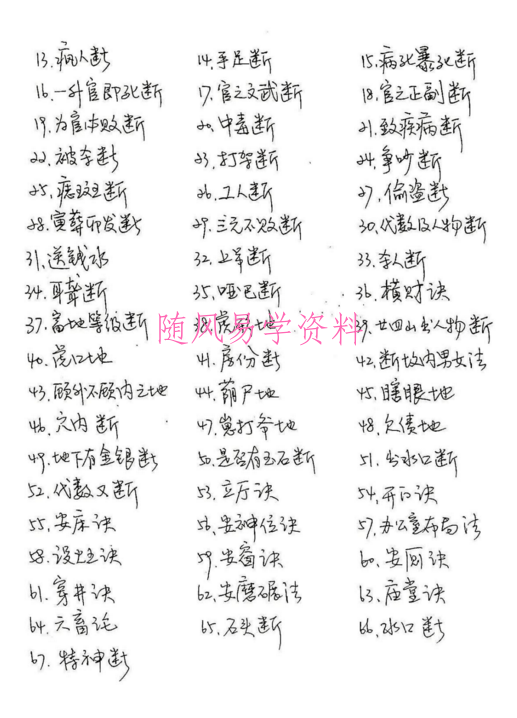 13.病人断 14.手足断 15.病死暴死断
16.一升官即死断 17.官之文武断 18.官之正副断
19.为官体败断 20.中毒断 21.致疾病断
22.被杀断 23.打架断 24.争吵断
25.痣斑断 26.工人断 27.偷盗断
28.寅葬卯发断 29.三元不败断 30.代数及人物断
31.送钱水 32.上吊断 33.杀人断
34.耳聋断 35.哑巴断 36.横财诀
37.富地等级断 38.虎 地 39.廿四山出人物断
随风易学资料
40.虎口地 41.房份断 42.断坟内男女法
43.顾外不顾内之地 44.葫尸地 45.瞎眼地
46.穴内断 47.崽打爷地 48.欠债地
49.地下有金银断 50.是否有玉石断 51.出水口断
52.代数又断 53.立厅诀 54.开门诀
55.安床诀 56.安神位诀 57.办公室布局法
58.设灶诀 59.安窗诀 60.安厕诀
61.穿井诀 62.安磨碾法 63.庙堂诀
64.六畜论 65.石头断 66.水口断
67.特神断